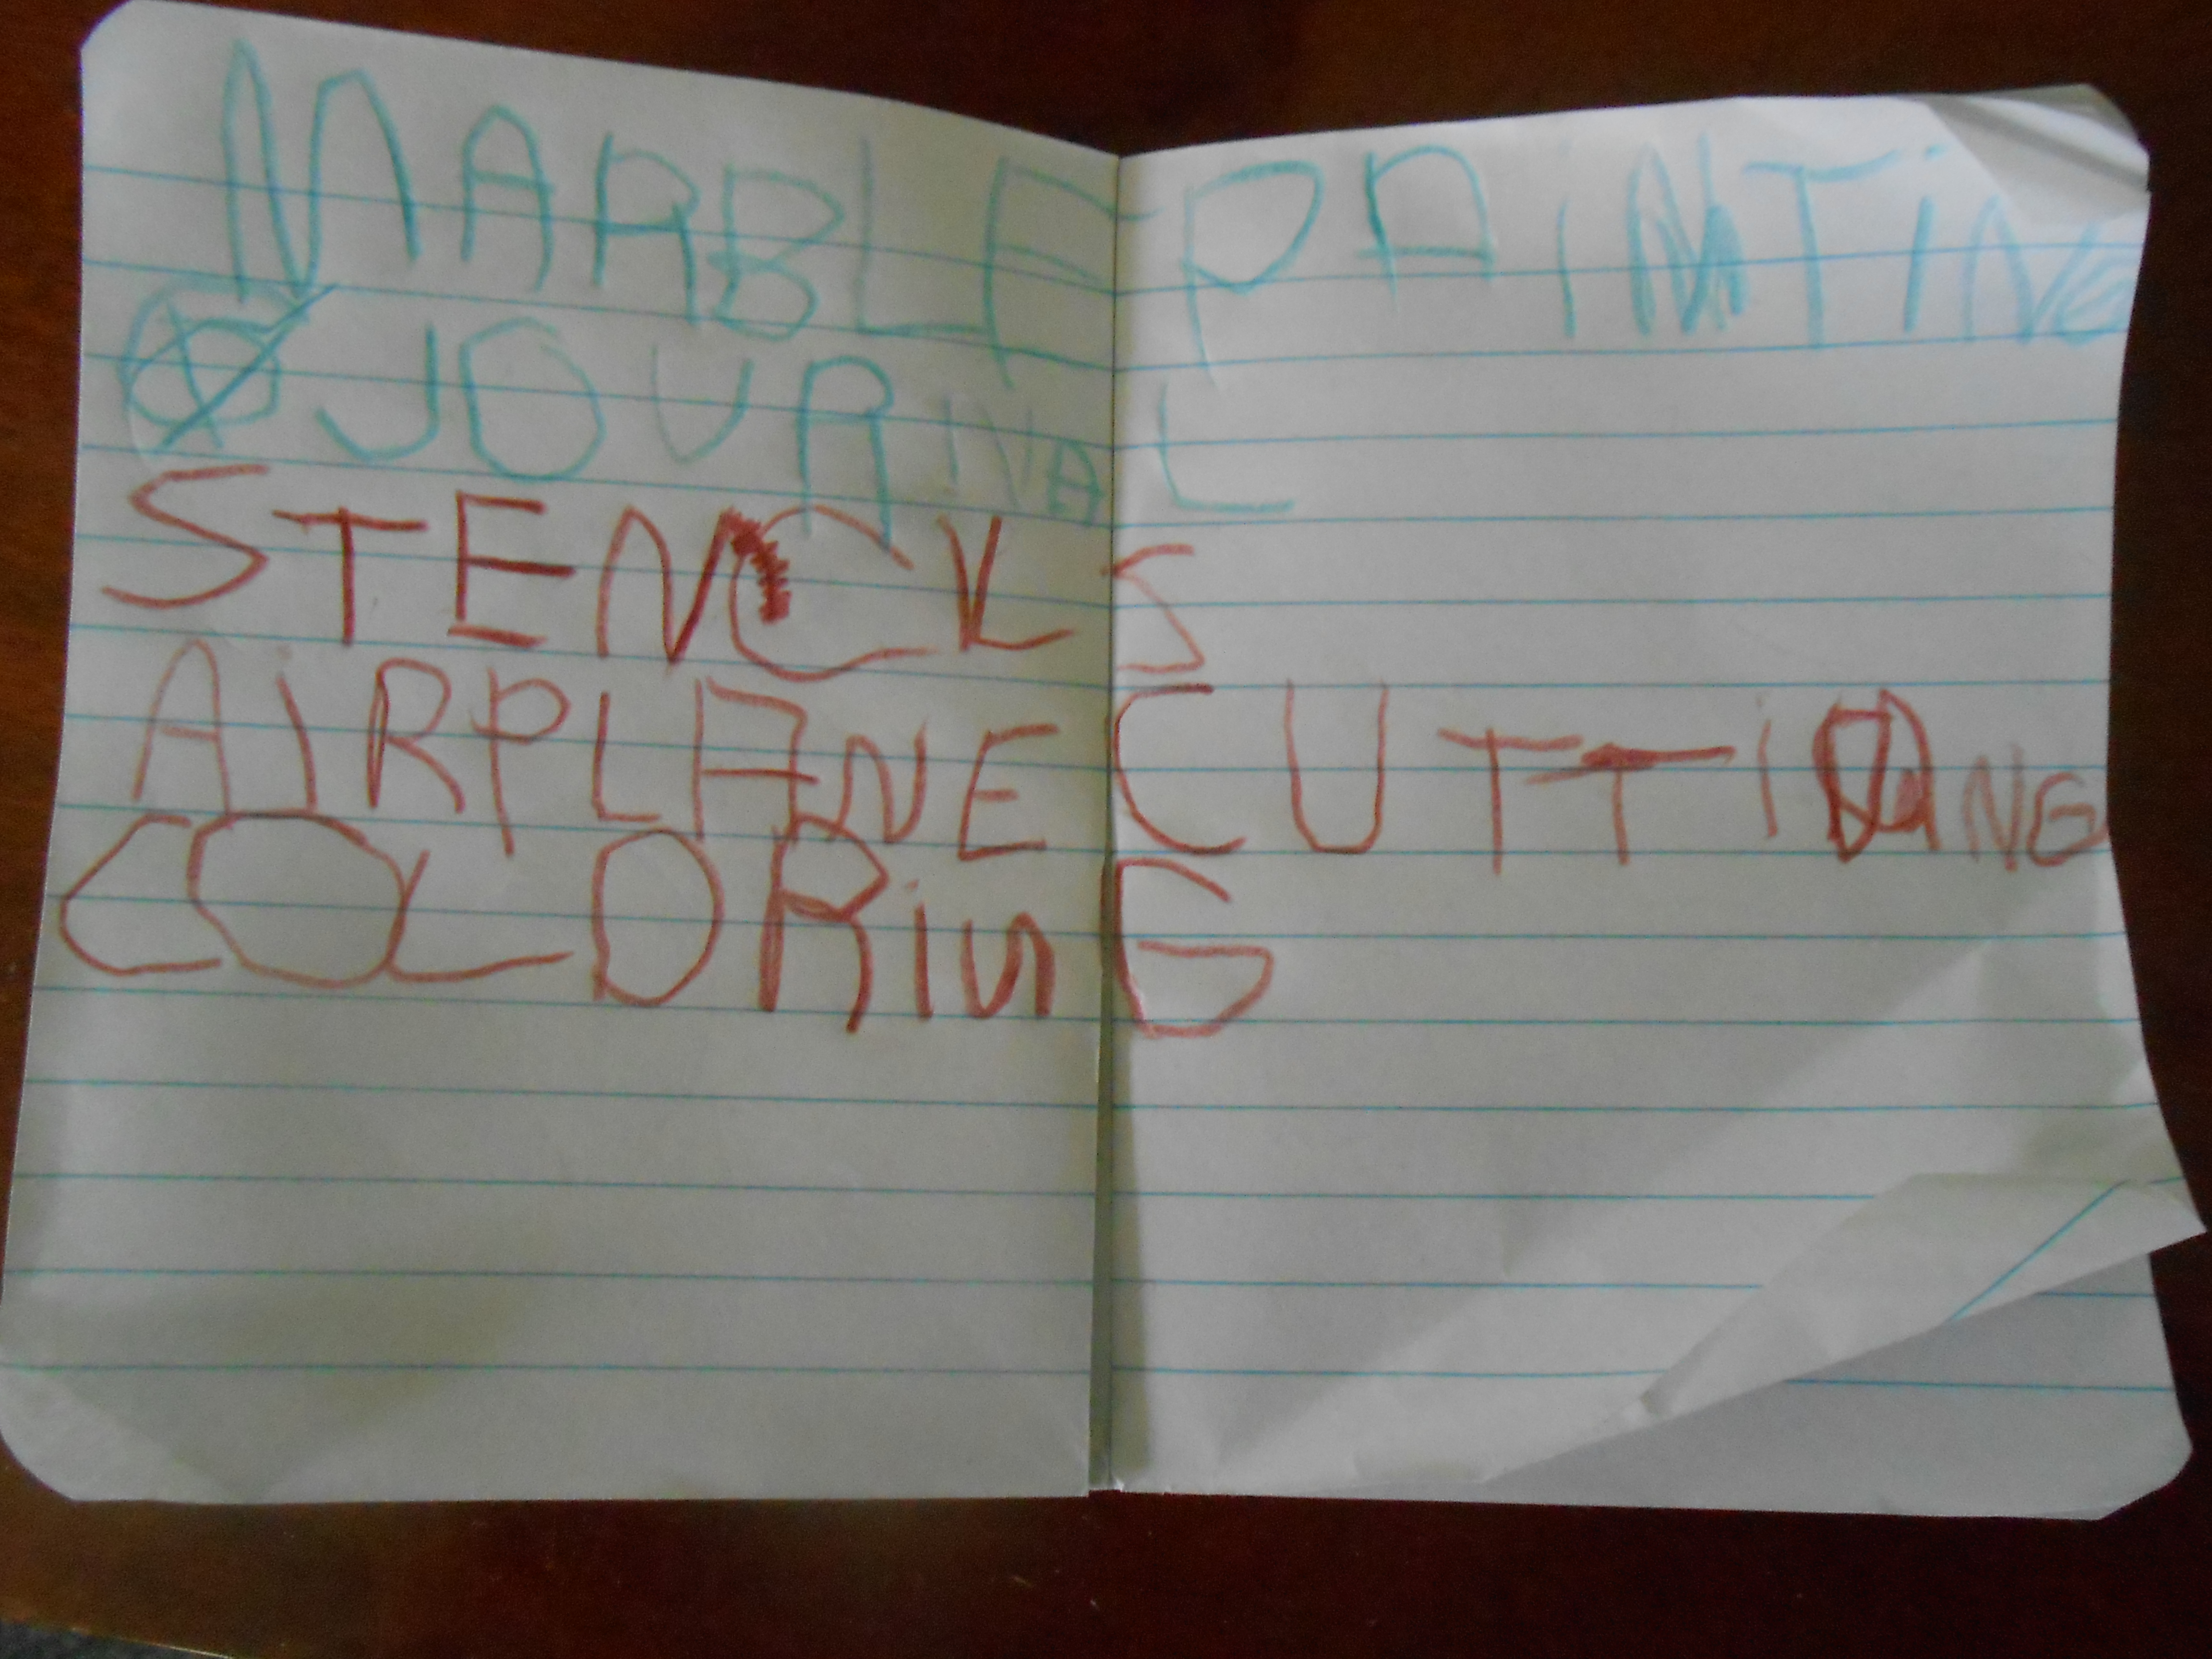 MARBLE PAINTING
JOURNAL
STENCILS
AIRPLANE CUTTING
COLORinG